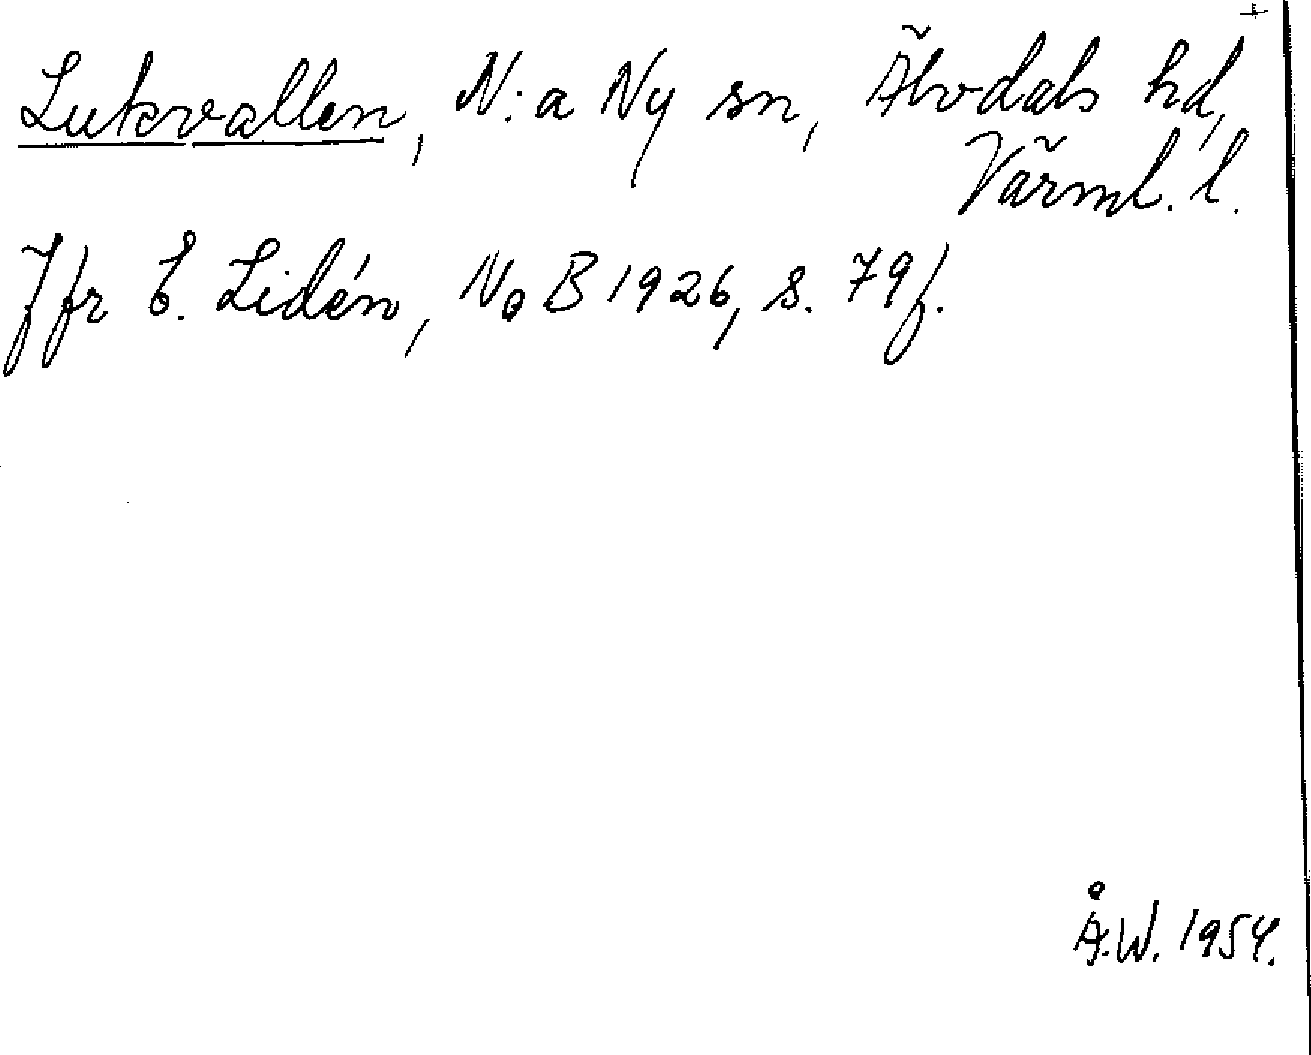 +
Lukvallen, N:a Ny sn, Älvdals hd,
Värml. l.
Jfr E. Lidén, NoB 1926, s. 79f.
Å.W. 1954.